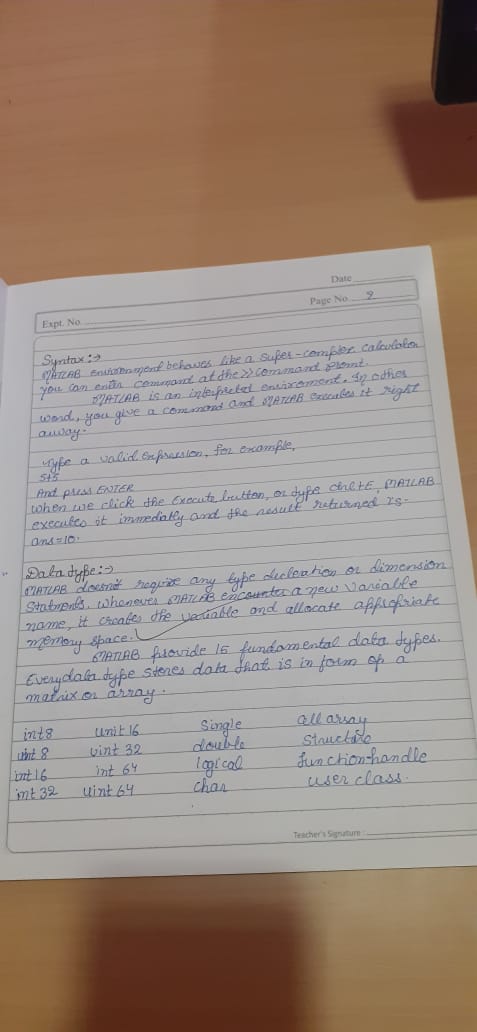 Date
Page No. 2
Expt. No.
Syntax :→
MATLAB environment behaves like a super-complex calculator
you can enter command at the >> command promt.
MATLAB is an interpreted envirement. In other
word, you give a command and MATLAB executes it right
away.
Type a valid expression, for example,
5+5
And press ENTER
When we click the Execute button, or type ctrl+E, MATLAB
executes it immediatly and the result returned is-
ans=10.
Data type :→
MATLAB doesn't require any type decleation or dimension
Statments. Whenever MATLAB encounter a new Variable
name, it creates the variable and allocate appropriate
memory space.
MATLAB provide 15 fundamental data types.
Every data type stores data that is in form of a
matrix or array.
int8 unit 16 Single Cell array
uint 8 uint 32 double Structure
int 16 int 64 logical function-handle
int 32 uint 64 Char user class.
Teacher's Signature :